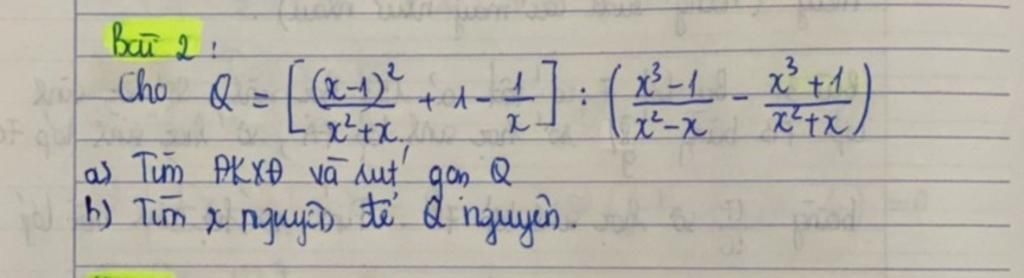 Bài 2 :
Cho Q = [ (x-1)²/(x²+x) + 1 - 1/x ] : ( (x³-1)/(x²-x) - (x³+1)/(x²+x) )
a) Tìm ĐKXĐ và rút gọn Q
b) Tìm x nguyên để Q nguyên.